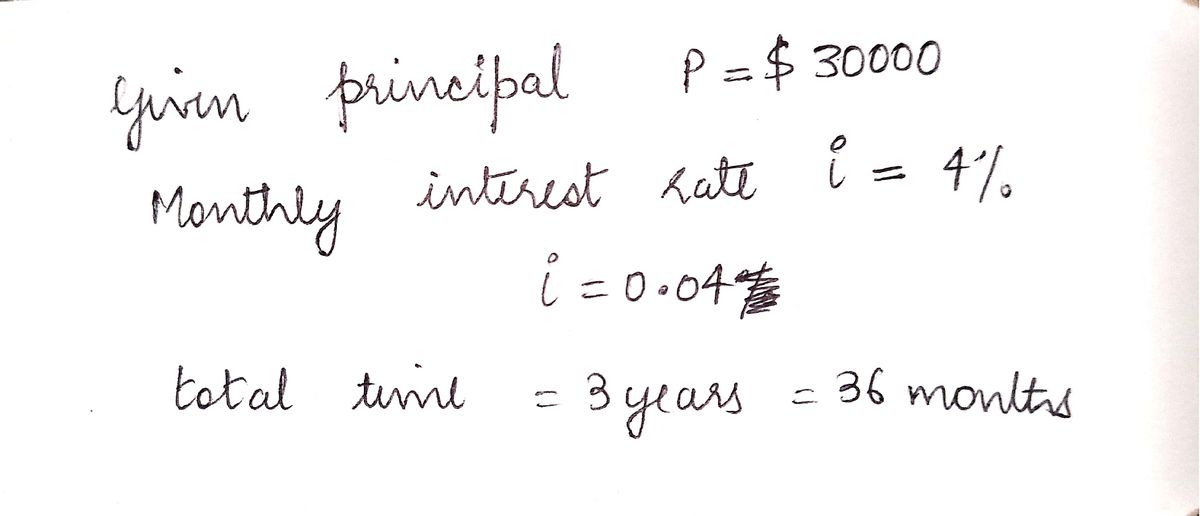 Given principal P = $ 30000
Monthly interest rate i = 4%
i = 0.04
total time = 3 years = 36 months